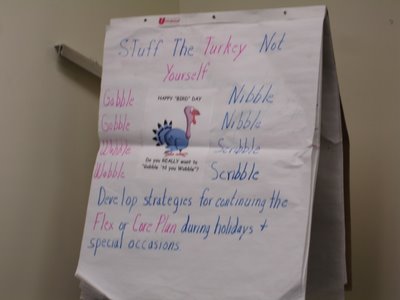 Stuff The Turkey Not
Yourself
Gobble Nibble
Gobble Nibble
Wobble Scribble
Wobble Scribble
HAPPY "BIRD" DAY
Do you REALLY want to
"Gobble 'til you Wobble"?
Develop strategies for continuing the
Flex or Core Plan during holidays +
special occasions